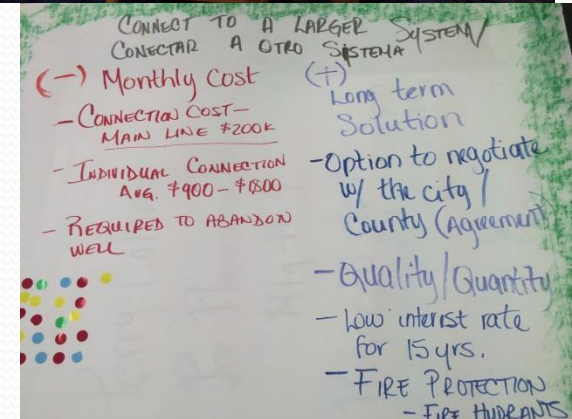 CONNECT TO A LARGER SYSTEM/
CONECTAR A OTRO SISTEMA
(-) Monthly Cost
- CONNECTION COST-
MAIN LINE $200K
- INDIVIDUAL CONNECTION
AVG. $900 - $1800
- REQUIRED TO ABANDON
WELL
(+)
Long term
Solution
- Option to negotiate
w/ the city /
County (Agreement)
- Quality/Quantity
- Low interest rate
for 15 yrs.
- FIRE PROTECTION
- FIRE HYDRANTS